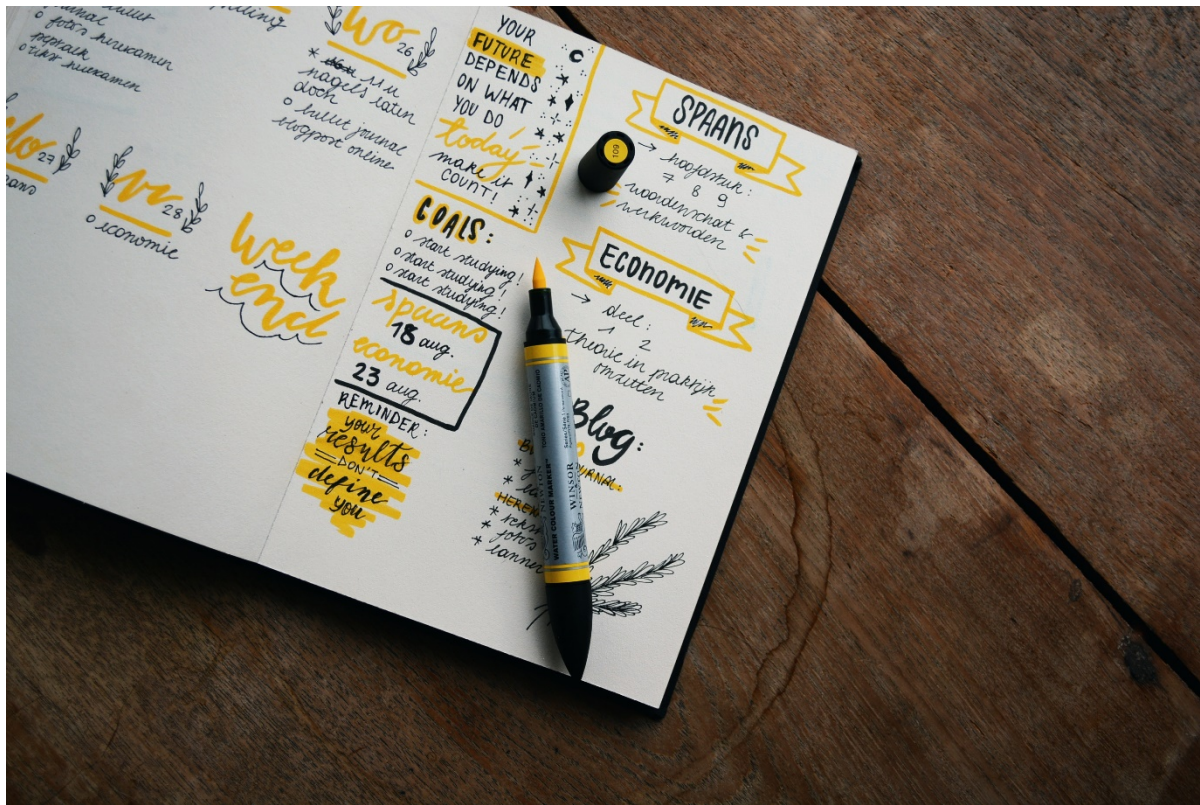 journal
o foto's herexamen
o tiks herexamen
wo 26
* nu
nagels laten
doen
o bullet journal
blogpost online
do 27
vr 28
o economie
week
end
YOUR
FUTURE
DEPENDS
ON WHAT
YOU DO
today
make it
COUNT!
GOALS:
o start studying!
o start studying!
o start studying!
spaans
18 aug.
economie
23 aug.
REMINDER:
your
results
DON'T
define
you
SPAANS
→ hoofdstuk:
7 8 9
woordenschat &
werkwoorden
ECONOMIE
→ deel:
1 2
theorie in praktijk
omzetten
Blog:
JOURNAL:
*
HEREX
* tekst
* foto's
* lanner
109
WATER COLOUR MARKER
WINSOR